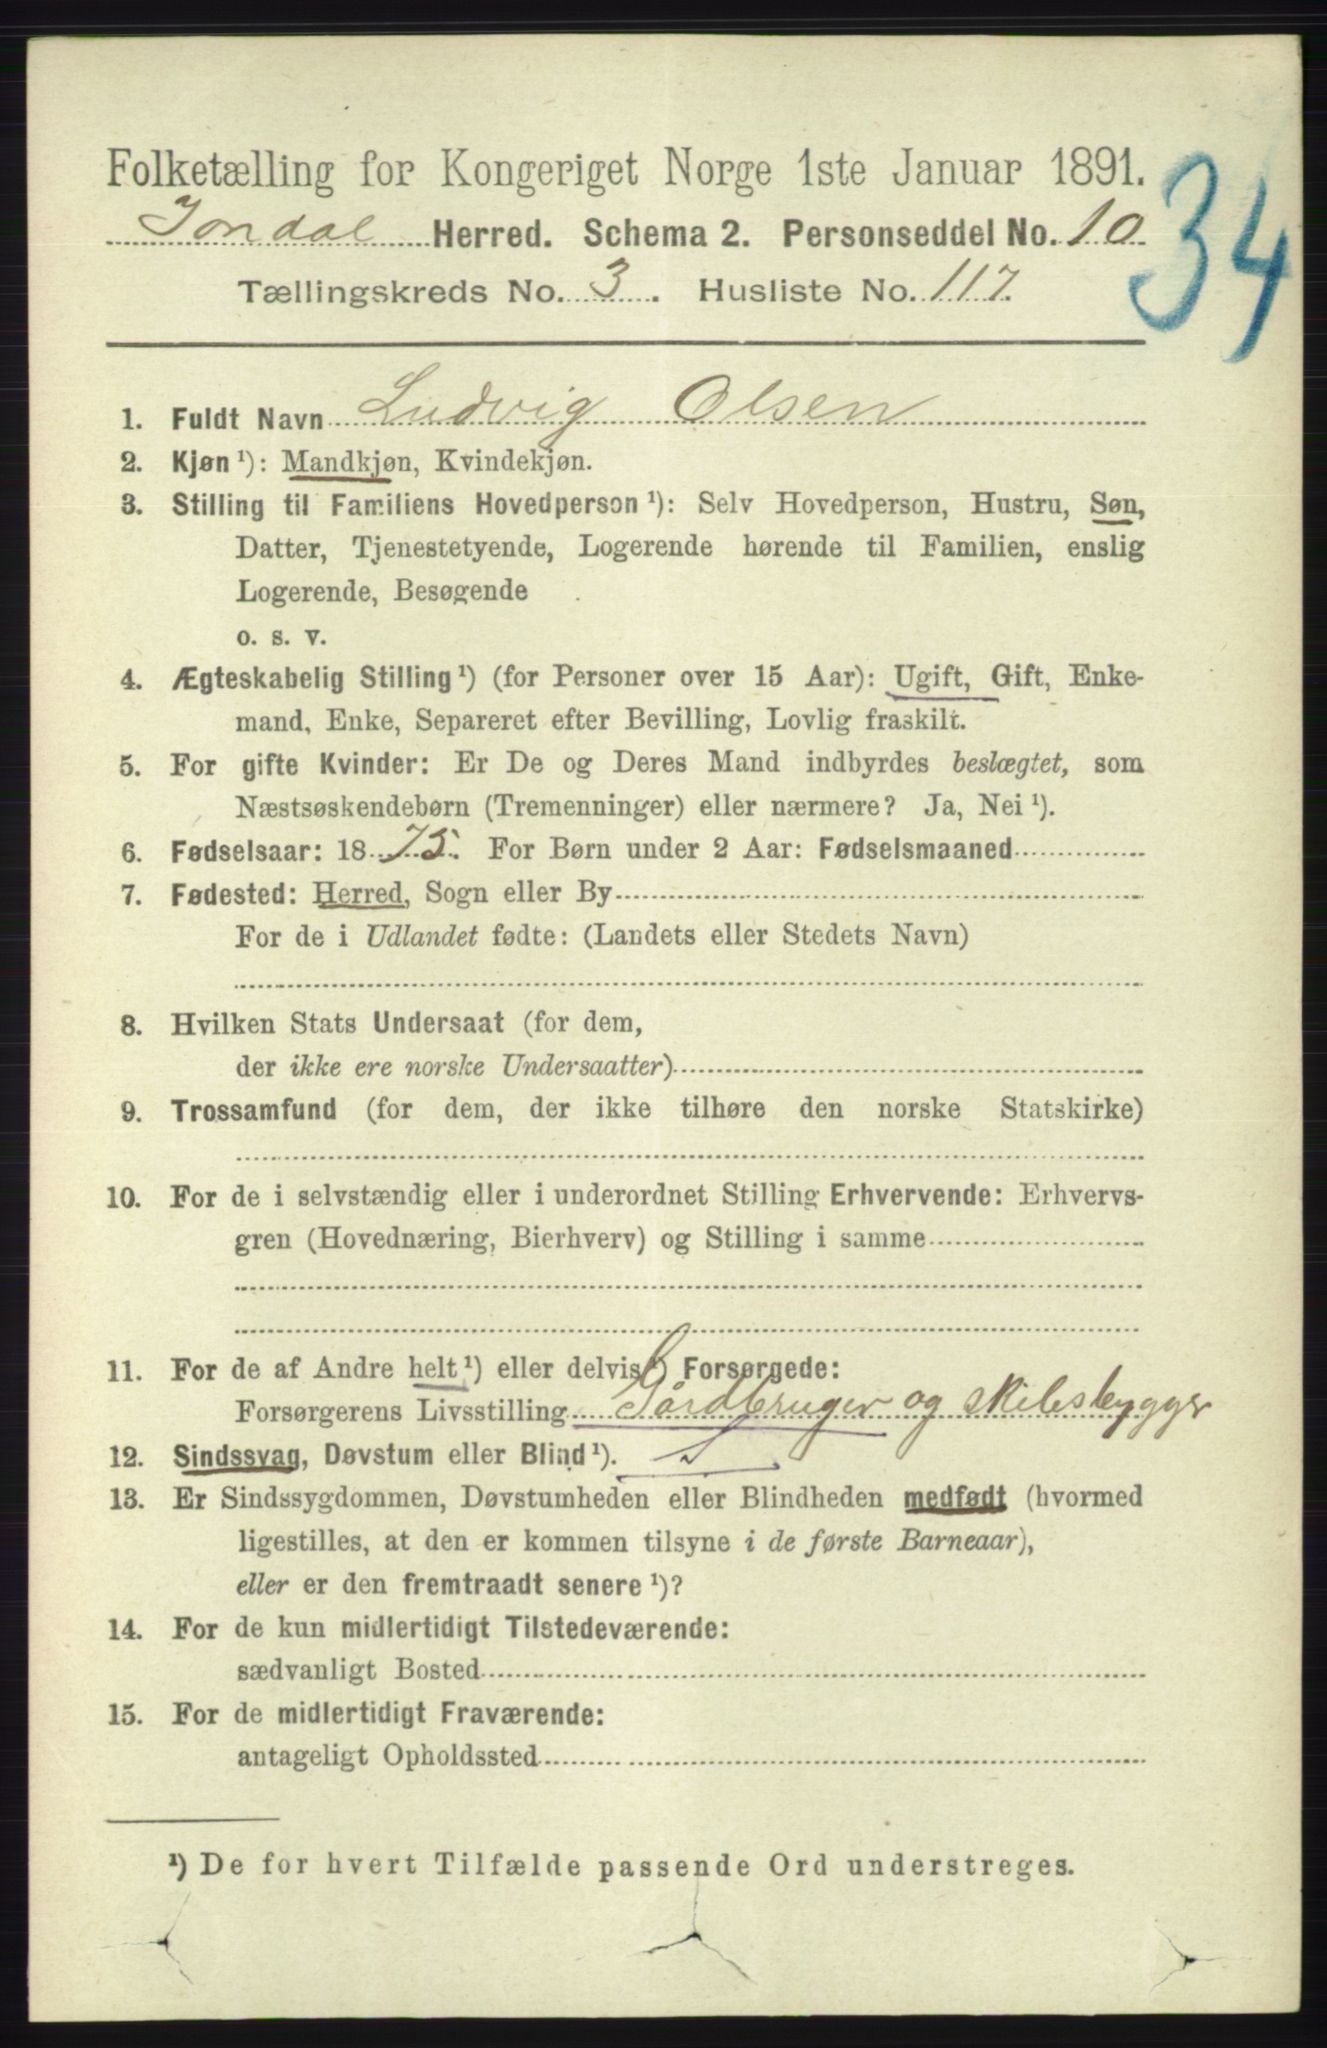 Folketælling for Kongeriget Norge 1ste Januar 1891.
34
Jondal Herred. Schema 2. Personseddel No. 10
Tællingskreds No. 3. Husliste No. 117.
1. Fuldt Navn Ludvig Olsen
2. Kjøn ¹): Mandkjøn, Kvindekjøn.
3. Stilling til Familiens Hovedperson ¹): Selv Hovedperson, Hustru, Søn,
Datter, Tjenestetyende, Logerende hørende til Familien, enslig
Logerende, Besøgende
o. s. v.
4. Ægteskabelig Stilling ¹) (for Personer over 15 Aar): Ugift, Gift, Enke-
mand, Enke, Separeret efter Bevilling, Lovlig fraskilt.
5. For gifte Kvinder: Er De og Deres Mand indbyrdes beslægtet, som
Næstsøskendebørn (Tremenninger) eller nærmere? Ja, Nei ¹).
6. Fødselsaar: 1875. For Børn under 2 Aar: Fødselsmaaned
7. Fødested: Herred, Sogn eller By
For de i Udlandet fødte: (Landets eller Stedets Navn)
8. Hvilken Stats Undersaat (for dem,
der ikke ere norske Undersaatter)
9. Trossamfund (for dem, der ikke tilhøre den norske Statskirke)
10. For de i selvstændig eller i underordnet Stilling Erhvervende: Erhvervs-
gren (Hovednæring, Bierhverv) og Stilling i samme
11. For de af Andre helt ¹) eller delvis ¹) Forsørgede:
Forsørgerens Livsstilling Gårdbruger og skibsbygger
12. Sindssvag, Døvstum eller Blind ¹). S
13. Er Sindssygdommen, Døvstumheden eller Blindheden medfødt (hvormed
ligestilles, at den er kommen tilsyne i de første Barneaar),
eller er den fremtraadt senere ¹)?
14. For de kun midlertidigt Tilstedeværende:
sædvanligt Bosted
15. For de midlertidigt Fraværende:
antageligt Opholdssted
¹) De for hvert Tilfælde passende Ord understreges.